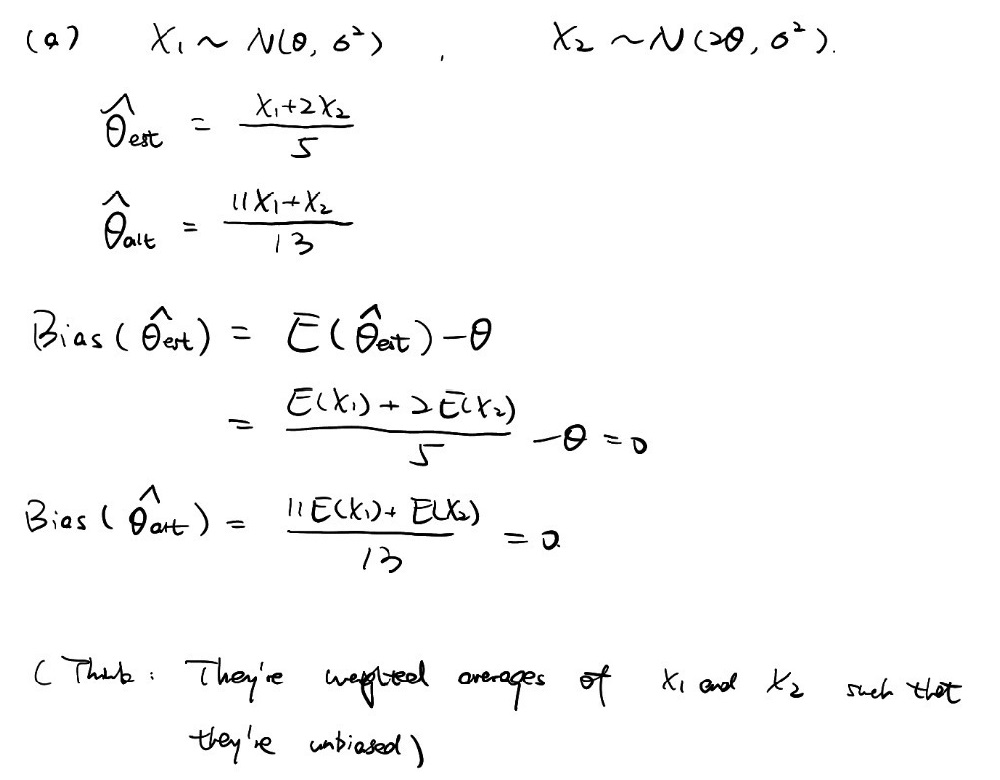 (a) X₁ ~ N(θ, σ²), X₂ ~ N(2θ, σ²).
θ̂est = (X₁+2X₂)/5
θ̂alt = (11X₁+X₂)/13
Bias(θ̂est) = E(θ̂est) − θ
= (E(X₁) + 2E(X₂))/5 − θ = 0
Bias(θ̂alt) = (11E(X₁) + E(X₂))/13 = 0.
(Think: They're weighted averages of X₁ and X₂ such that
they're unbiased)